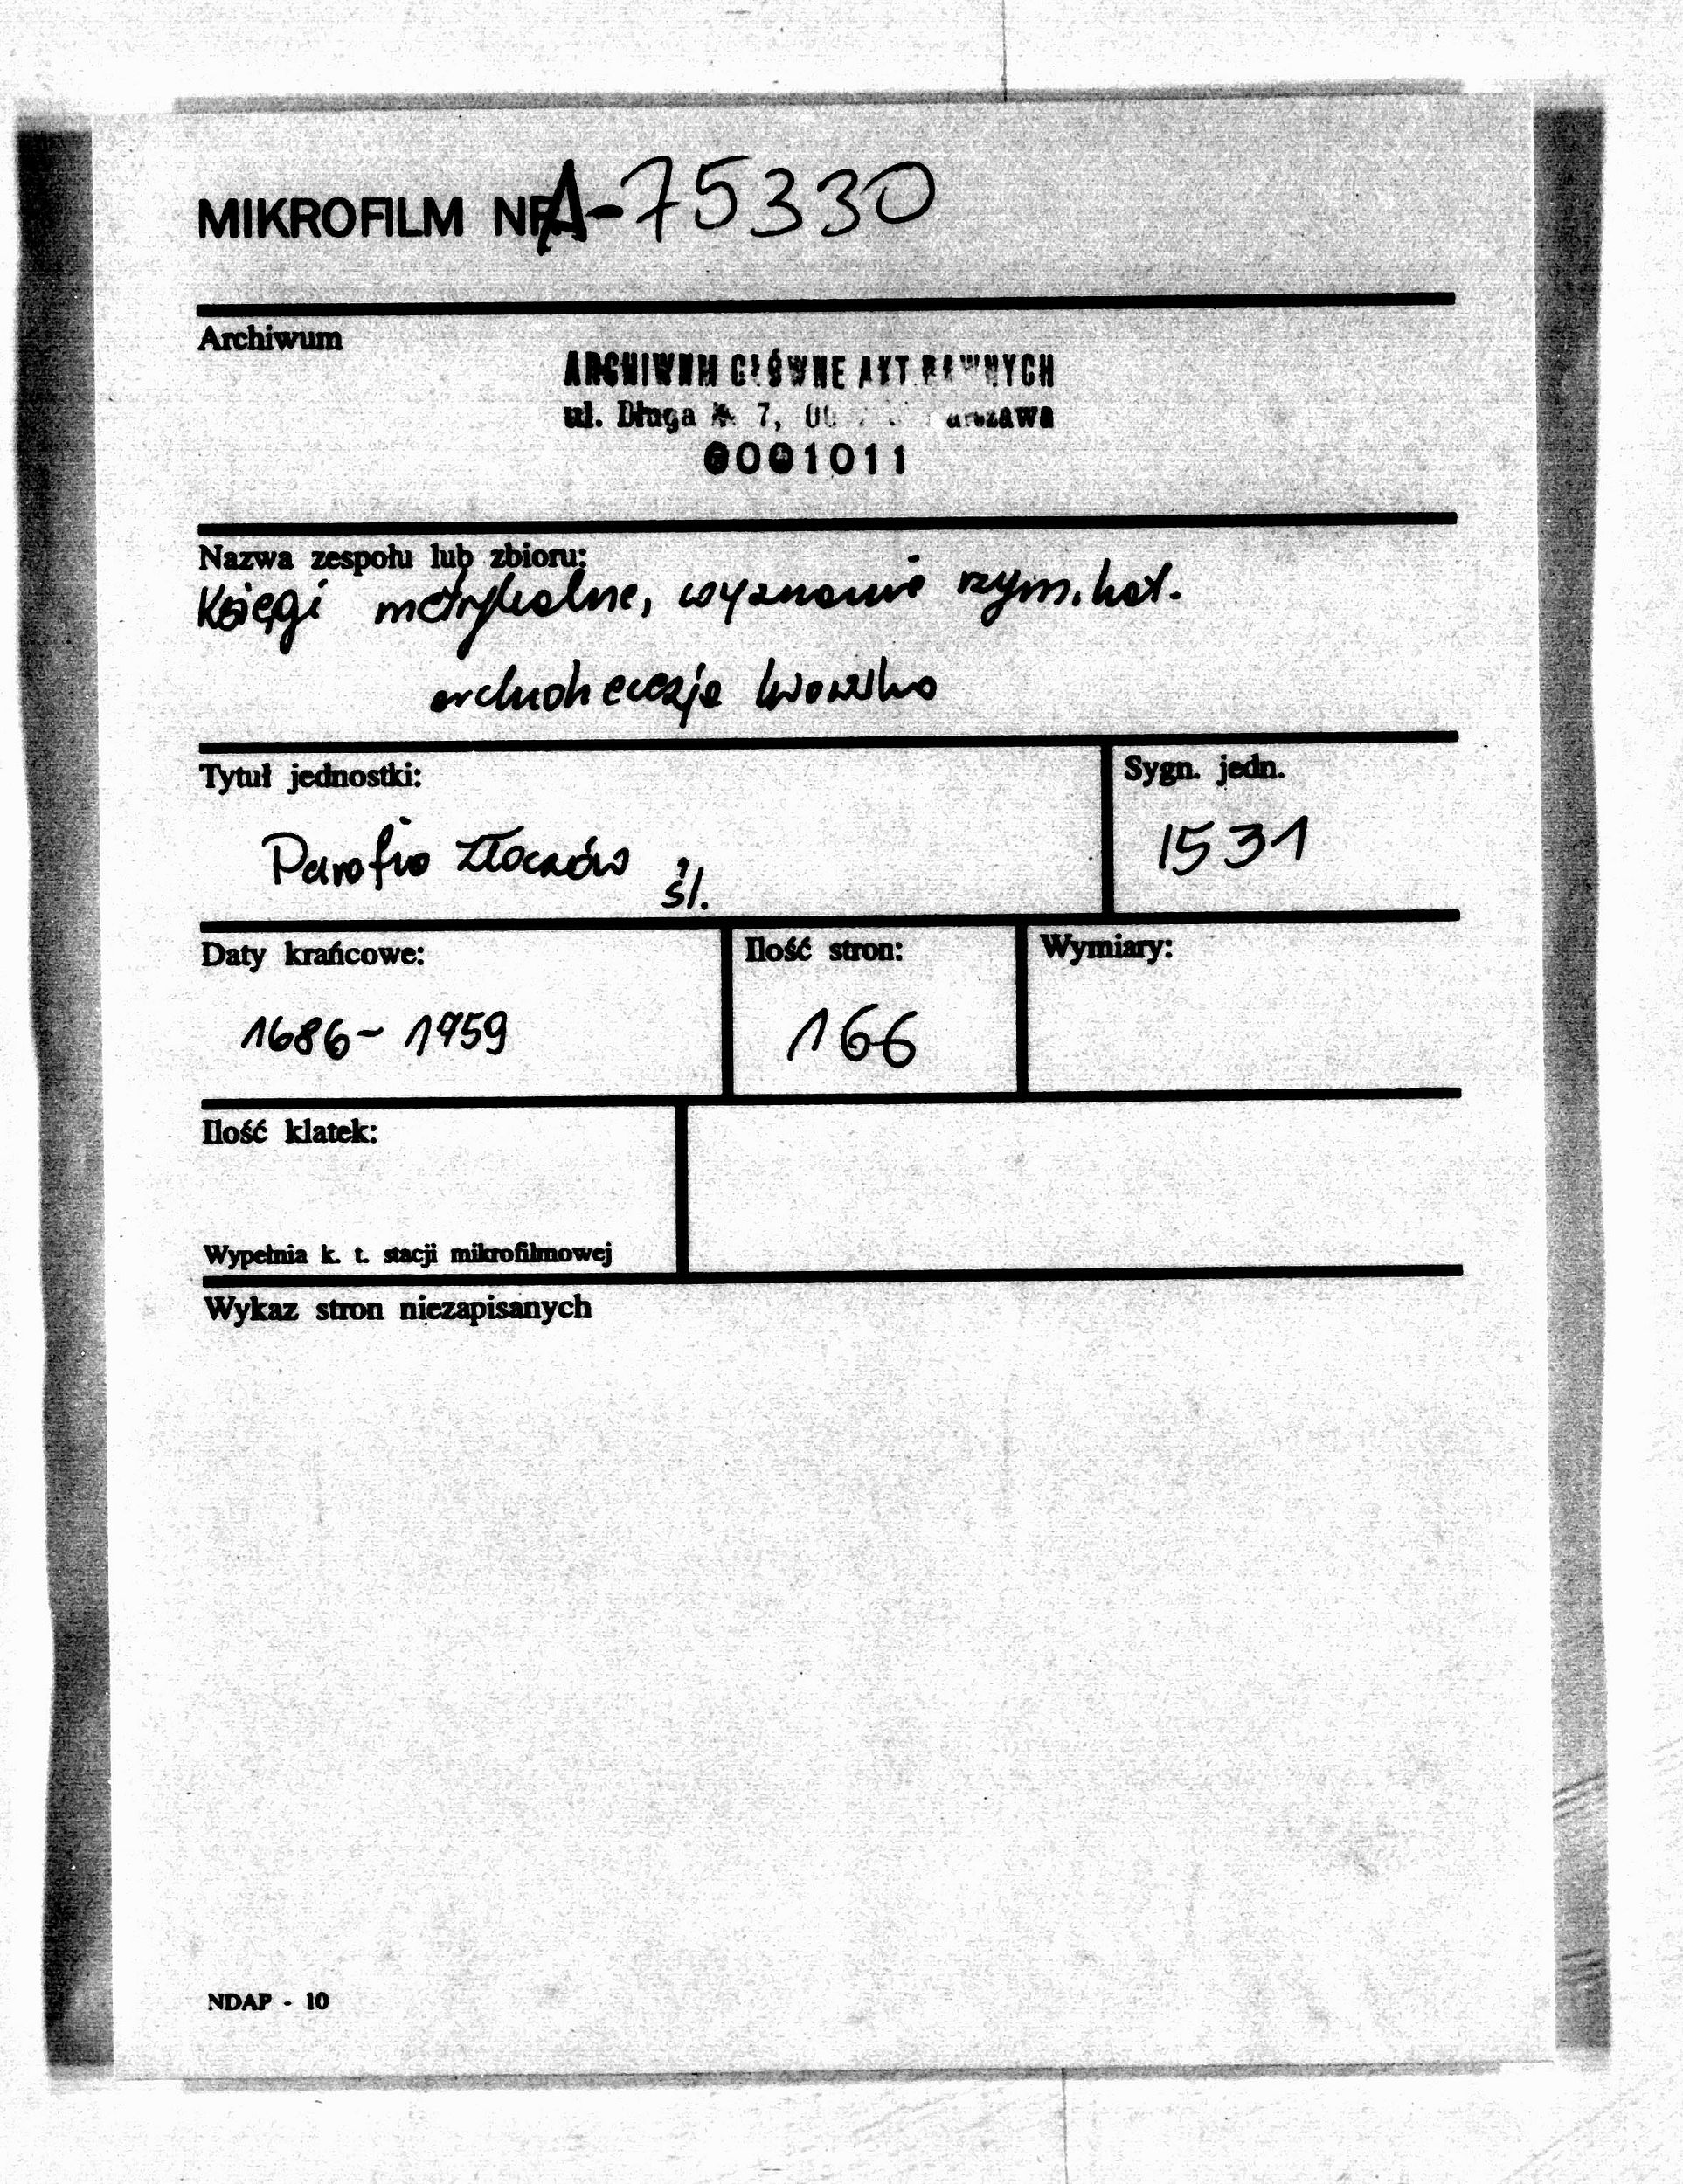 MIKROFILM NR A-75330
Archiwum
ARCHIWUM GŁÓWNE AKT DAWNYCH
ul. Długa 7, Warszawa
0001011
Nazwa zespołu lub zbioru:
Księgi metrykalne, wyznanie rzym. kat.
archidiecezja lwowska
Tytuł jednostki:
Sygn. jedn.
Parafia Złoczów śl.
1531
Daty krańcowe:
Ilość stron:
Wymiary:
1686 - 1759
166
Ilość klatek:
Wypełnia k. t. stacji mikrofilmowej
Wykaz stron niezapisanych
NDAP - 10